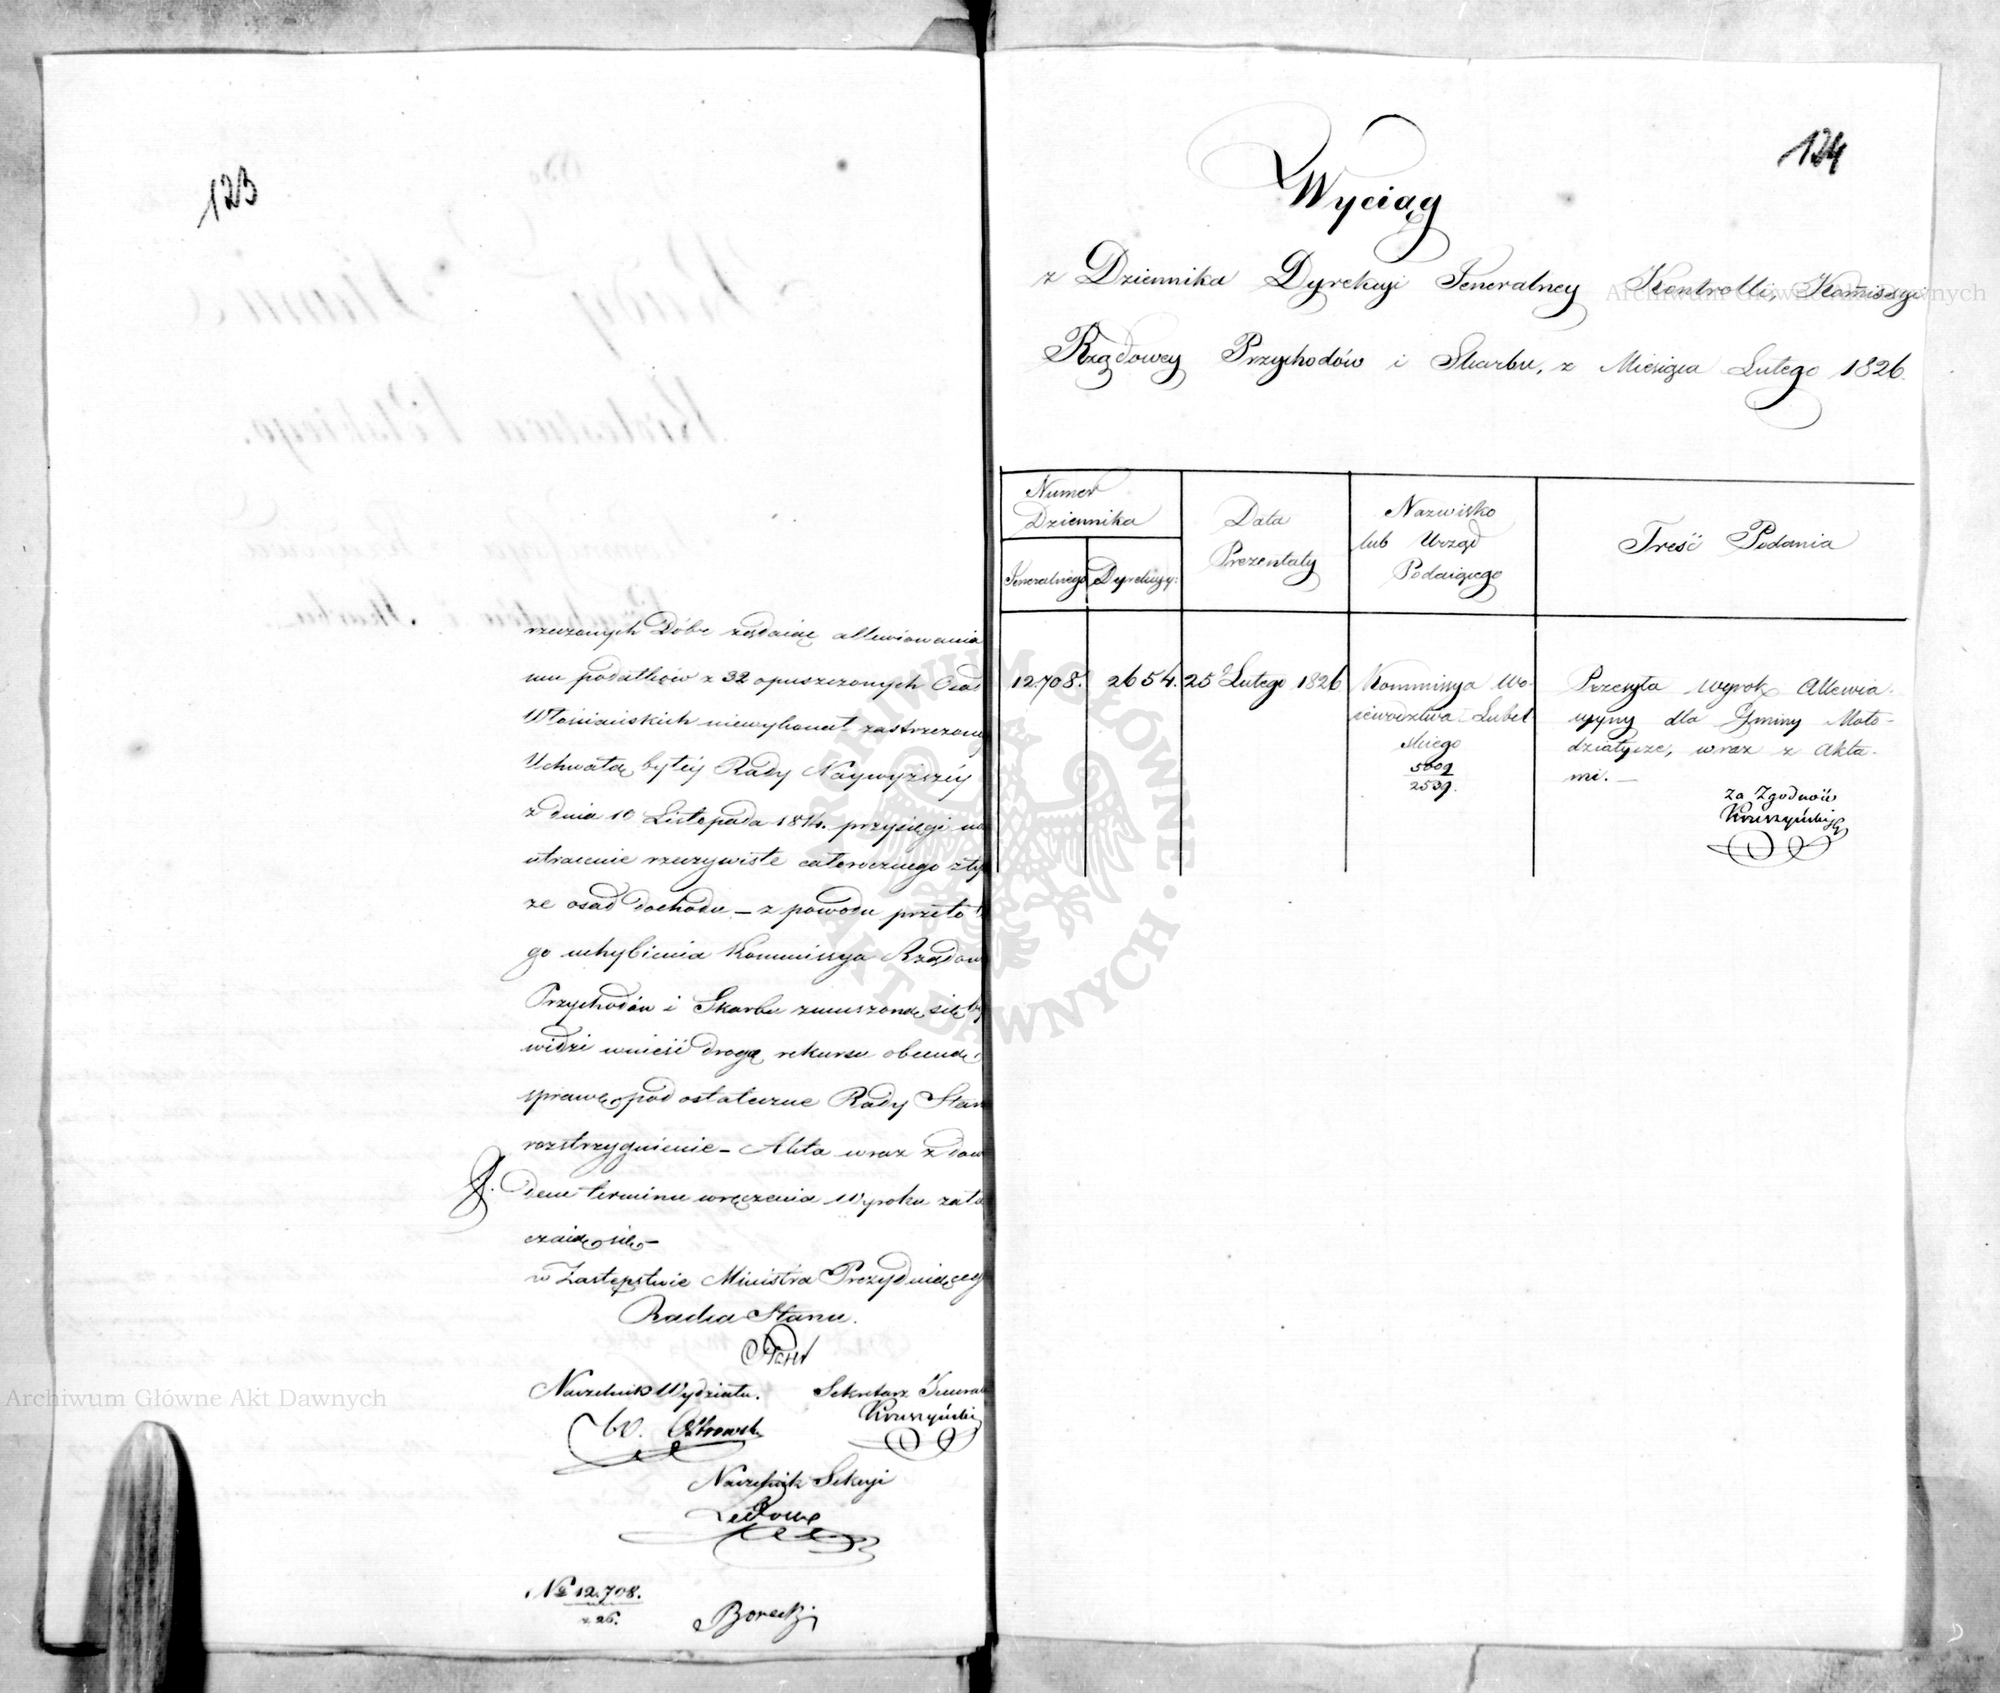 123
rzeczonych Dóbr żądaiąc allewiowania
mu podatków z 32 opuszczonych Osad
Włościańskich niewykonał zastrzeżoney
Uchwałą byłéy Rady Naywyższéy
z dnia 10 Listopada 1814. przysięgi na
utracenie rzeczywiste całorocznego z ty
ze osad dochodu – z powodu przeto
go uchybienia Kommissya Rządow
Przychodów i Skarbu zmuszoną się by
widzi wnieść drogą rekursu obecną
sprawę pod ostateczne Rady Stan
rozstrzygnienie – Akta wraz z dow
dem terminu wręczenia Wyroku zała
czaią się –
w Zastępstwie Ministra Prezyduiącego
Radca Stanu.
Naczelnik Wydziału. Sekretarz Jeneral
W. Ostrowski Kruszyński
Naczelnik Sekcyi
№ 12.708.
26.
Borecki
124
Wyciąg
z Dziennika Dyrekcyi Jeneralney Kontrolli, Kommissyi
Rządowey Przychodów i Skarbu, z Miesiąca Lutego 1826.
Numer
Dziennika
Jeneralnego Dyrekcyi:
Data
Prezentaty
Nazwisko
lub Urząd
Podaiącego
Treść Podania
12.708. 2654. 25 Lutego 1826
Kommissya Wo-
iewództwa Lubel
skiego
5002
2532.
Przesyła Wyrok Allewia-
cyiny dla Gminy Moło-
działycze, wraz z Akta-
mi. –
Za Zgodność
Kruszyński
Archiwum Główne Akt Dawnych
Archiwum Główne Akt Dawnych
ARCHIWUM GŁÓWNE AKT DAWNYCH